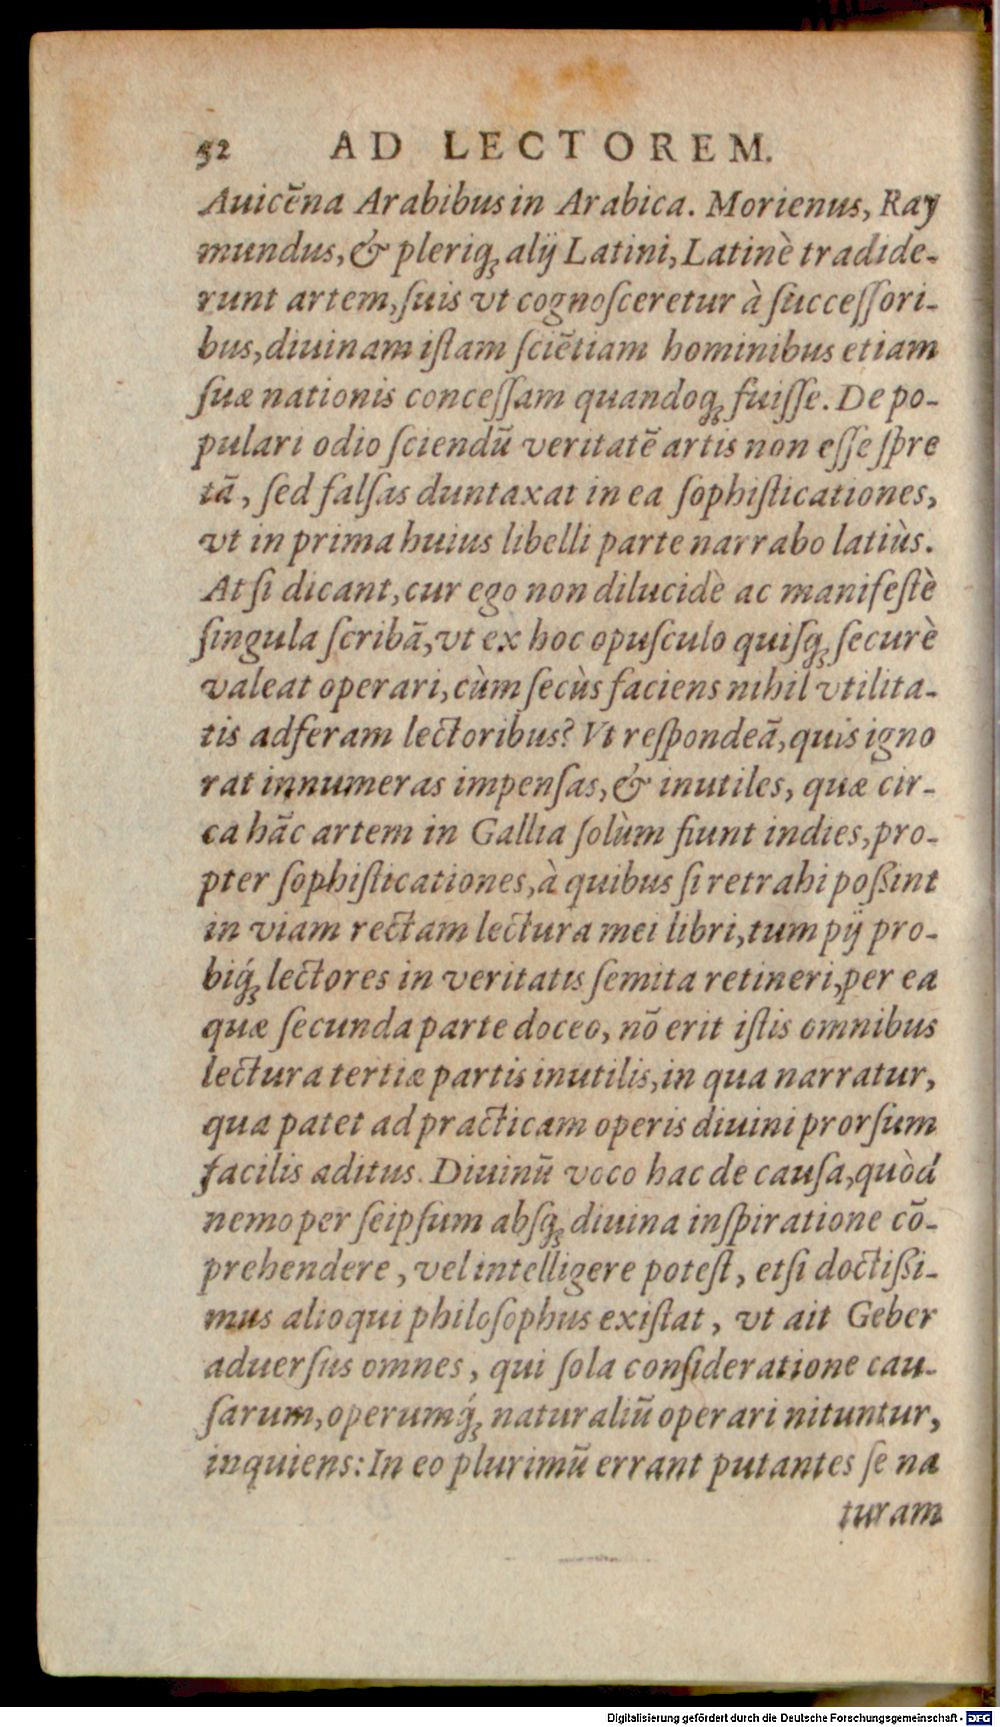 52 AD LECTOREM.
Auicēna Arabibus in Arabica. Morienus, Ray
mundus, & pleriq́ꝫ alij Latini, Latinè tradide-
runt artem, ſuis vt cognoſceretur à ſucceſſori-
bus, diuinam iſtam ſciētiam hominibus etiam
ſuæ nationis conceſſam quandoqꝫ fuiſſe. De po-
pulari odio ſciendū veritatē artis non eſſe ſpre
tā, ſed falſas duntaxat in ea ſophiſticationes,
vt in prima huius libelli parte narrabo latiùs.
At ſi dicant, cur ego non dilucidè ac manifeſtè
ſingula ſcribā, vt ex hoc opuſculo quiſqꝫ ſecurè
valeat operari, cùm ſecùs faciens nihil vtilita-
tis adferam lectoribus? Vt reſpondeā, quis igno
rat innumeras impenſas, & inutiles, quæ cir-
ca hāc artem in Gallia ſolùm fiunt indies, pro-
pter ſophiſticationes, à quibus ſi retrahi poßint
in viam rectam lectura mei libri, tum pij pro-
biq́ꝫ lectores in veritatis ſemita retineri, per ea
quæ ſecunda parte doceo, nō erit iſtis omnibus
lectura tertiæ partis inutilis, in qua narratur,
qua patet ad practicam operis diuini prorſum
facilis aditus. Diuinū voco hac de cauſa, quòd
nemo per ſeipſum abſqꝫ diuina inſpiratione cō-
prehendere, vel intelligere poteſt, etſi doctißi-
mus alioqui philoſophus exiſtat, vt ait Geber
aduerſus omnes, qui ſola conſideratione cau-
ſarum, operumq́ꝫ naturaliū operari nituntur,
inquiens: In eo plurimū errant putantes ſe na
turam
Digitalisierung gefördert durch die Deutsche Forschungsgemeinschaft - DFG